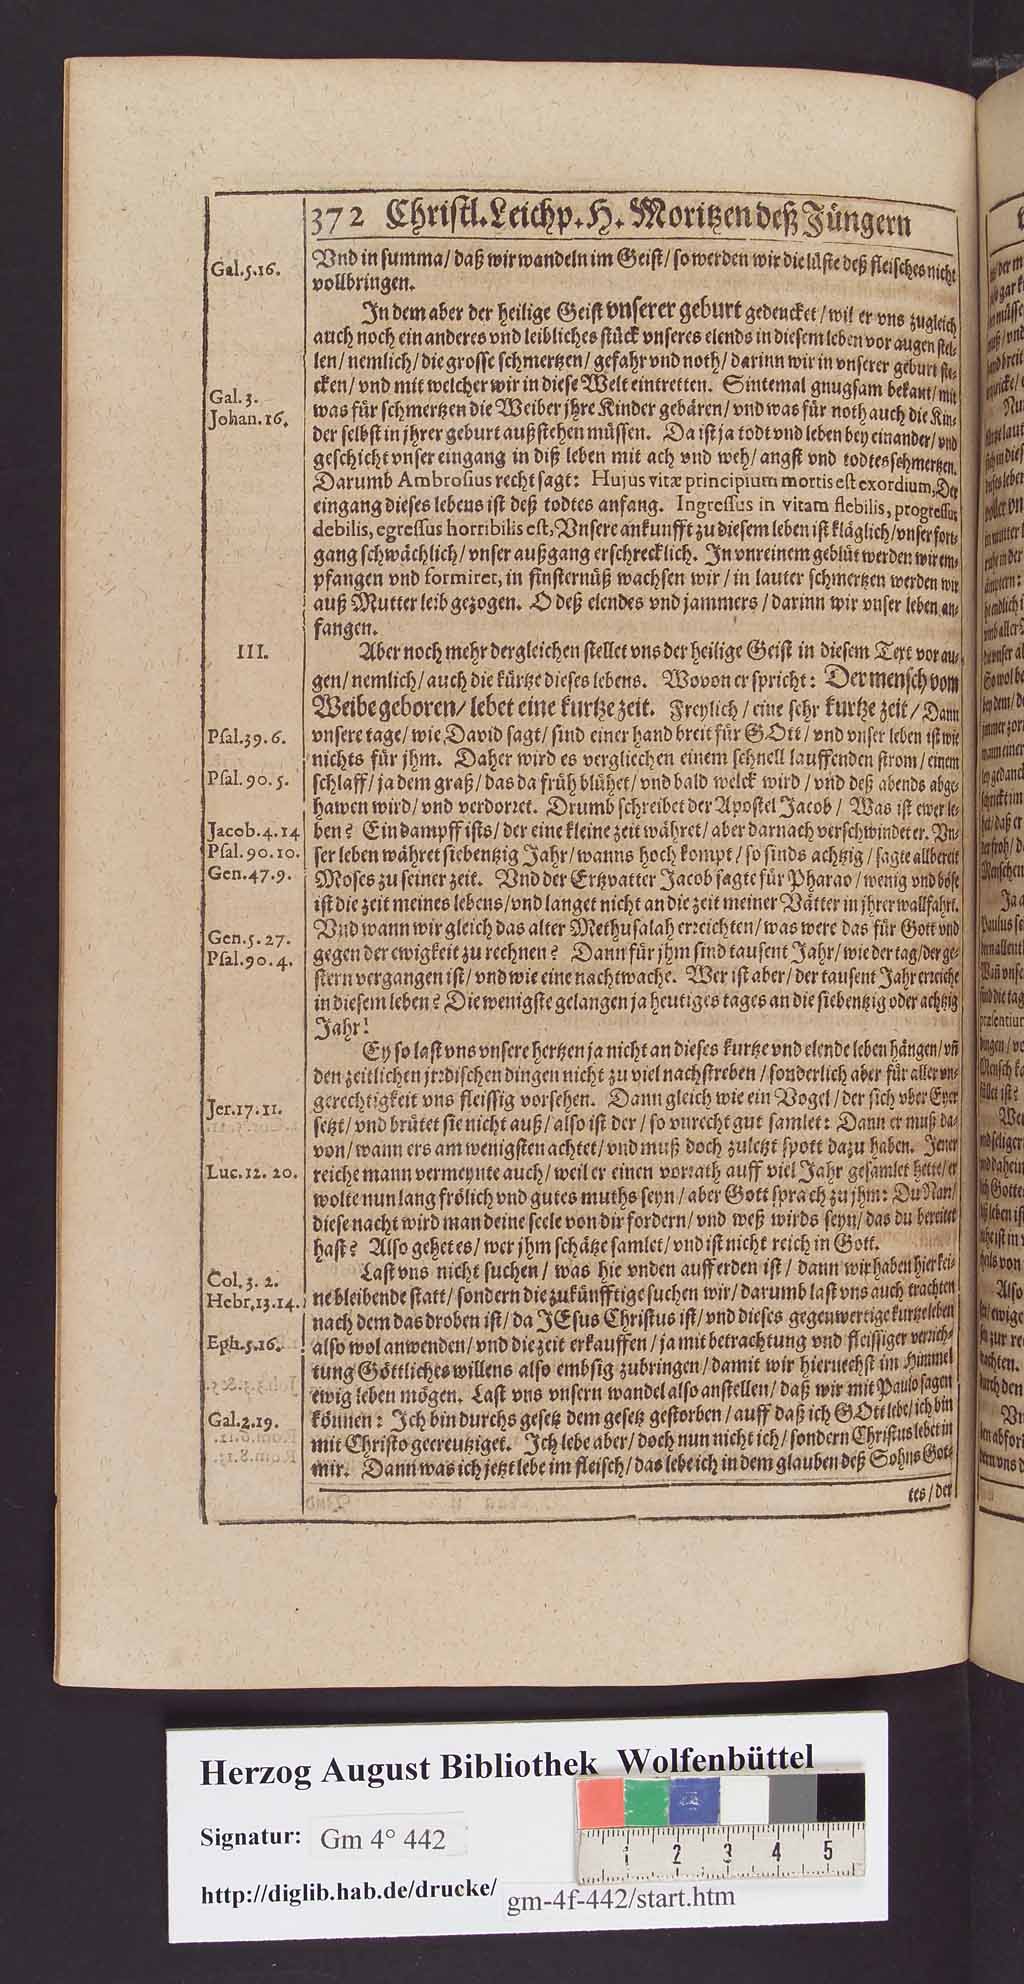 372 Christl. Leichp. H. Moritzen deß Jüngern
Gal.5.16.
Vnd in summa / daß wir wandeln im Geist / so werden wir die lüste deß fleisches nicht
vollbringen.
In dem aber der heilige Geist vnserer geburt gedencket / wil er vns zugleich
auch noch ein anderes vnd leibliches stück vnseres elends in diesem leben vor augen stel-
len / nemlich / die grosse schmertzen / gefahr vnd noth / darinn wir in vnserer geburt ste-
cken / vnd mit welcher wir in diese Welt eintretten. Sintemal gnugsam bekant / mit
Gal.3.
Johan.16.
was für schmertzen die Weiber jhre Kinder gebären / vnd was für noth auch die Kin-
der selbst in jhrer geburt außstehen müssen. Da ist ja todt vnd leben bey einander / vnd
geschicht vnser eingang in diß leben mit ach vnd weh / angst vnd todtesschmertzen.
Darumb Ambrosius recht sagt: Hujus vitæ principium mortis est exordium, Der
eingang dieses lebens ist deß todtes anfang. Ingressus in vitam flebilis, progressus
debilis, egressus horribilis est, Vnsere ankunfft zu diesem leben ist kläglich / vnser fort-
gang schwächlich / vnser außgang erschrecklich. In vnreinem geblüt werden wir em-
pfangen vnd formiret, in finsternüß wachsen wir / in lauter schmertzen werden wir
auß Mutter leib gezogen. O deß elendes vnd jammers / darinn wir vnser leben an-
fangen.
III.
Aber noch mehr dergleichen stellet vns der heilige Geist in diesem Text vor au-
gen / nemlich / auch die kürtze dieses lebens. Wovon er spricht: Der mensch vom
Weibe geboren / lebet eine kurtze zeit. Freylich / eine sehr kurtze zeit / Dann
Psal.39.6.
vnsere tage / wie David sagt / sind einer hand breit für GOtt / vnd vnser leben ist wie
nichts für jhm. Daher wird es vergliechen einem schnell lauffenden strom / einem
Psal.90.5.
schlaff / ja dem graß / das da früh blühet / vnd bald welck wird / vnd deß abends abge-
hawen wird / vnd verdorret. Drumb schreibet der Apostel Jacob / Was ist ewer le-
Jacob.4.14
ben? Ein dampff ists / der eine kleine zeit währet / aber darnach verschwindet er. Vn-
Psal.90.10.
ser leben währet siebentzig Jahr / wanns hoch kompt / so sinds achtzig / sagte allbereit
Gen.47.9.
Moses zu seiner zeit. Vnd der Ertzvatter Jacob sagte für Pharao / wenig vnd böse
ist die zeit meines lebens / vnd langet nicht an die zeit meiner Vätter in jhrer wallfahrt.
Gen.5.27.
Vnd wann wir gleich das alter Methusalah erreichten / was were das für Gott vnd
Psal.90.4.
gegen der ewigkeit zu rechnen? Dann für jhm sind tausent Jahr / wie der tag / der ge-
stern vergangen ist / vnd wie eine nachtwache. Wer ist aber / der tausent Jahr erreiche
in diesem leben? Die wenigste gelangen ja heutiges tages an die siebentzig oder achtzig
Jahr!
Ey so last vns vnsere hertzen ja nicht an dieses kurtze vnd elende leben hängen / vñ
den zeitlichen jrrdischen dingen nicht zu viel nachstreben / sonderlich aber für aller vn-
gerechtigkeit vns fleissig vorsehen. Dann gleich wie ein Vogel / der sich vber Eyer
Jer.17.11.
setzt / vnd brütet sie nicht auß / also ist der / so vnrecht gut samlet: Dann er muß da-
von / wann ers am wenigsten achtet / vnd muß doch zuletzt spott dazu haben. Jener
Luc.12. 20.
reiche mann vermeynte auch / weil er einen vorrath auff viel Jahr gesamlet hette / er
wolte nun lang frölich vnd gutes muths seyn / aber Gott sprach zu jhm: Du Narr /
diese nacht wird man deine seele von dir fordern / vnd weß wirds seyn / das du bereitet
hast? Also gehet es / wer jhm schätze samlet / vnd ist nicht reich in Gott.
Col.3. 2.
Last vns nicht suchen / was hie vnden auff erden ist / dann wir haben hier kei-
Hebr.13.14.
ne bleibende statt / sondern die zukünfftige suchen wir / darumb last vns auch trachten
nach dem das droben ist / da JEsus Christus ist / vnd dieses gegenwertige kurtze leben
Eph.5.16.
also wol anwenden / vnd die zeit erkauffen / ja mit betrachtung vnd fleissiger verrich-
tung Göttliches willens also embsig zubringen / damit wir hiernechst im Himmel
ewig leben mögen. Last vns vnsern wandel also anstellen / daß wir mit Paulo sagen
Gal.2.19.
können: Ich bin durchs gesetz dem gesetz gestorben / auff daß ich GOtt lebe / ich bin
mit Christo gecreutziget. Ich lebe aber / doch nun nicht ich / sondern Christus lebet in
mir. Dann was ich jetzt lebe im fleisch / das lebe ich in dem glauben deß Sohns Got-
tes / der
Herzog August Bibliothek Wolfenbüttel
Signatur: Gm 4° 442
http://diglib.hab.de/drucke/ gm-4f-442/start.htm
1 2 3 4 5